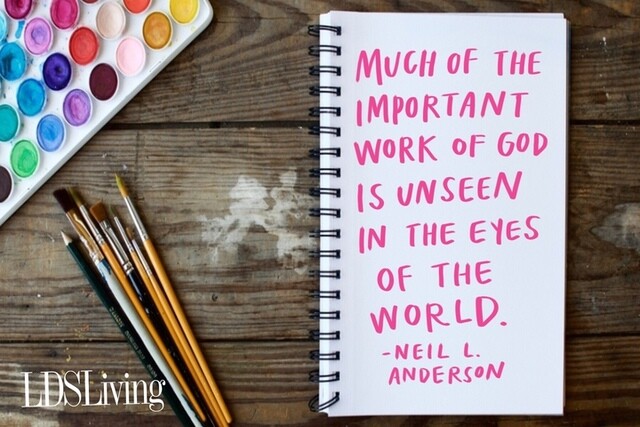 MUCH OF THE
IMPORTANT
WORK OF GOD
IS UNSEEN
IN THE EYES
OF THE
WORLD.
-NEIL L.
ANDERSON
LDSLiving